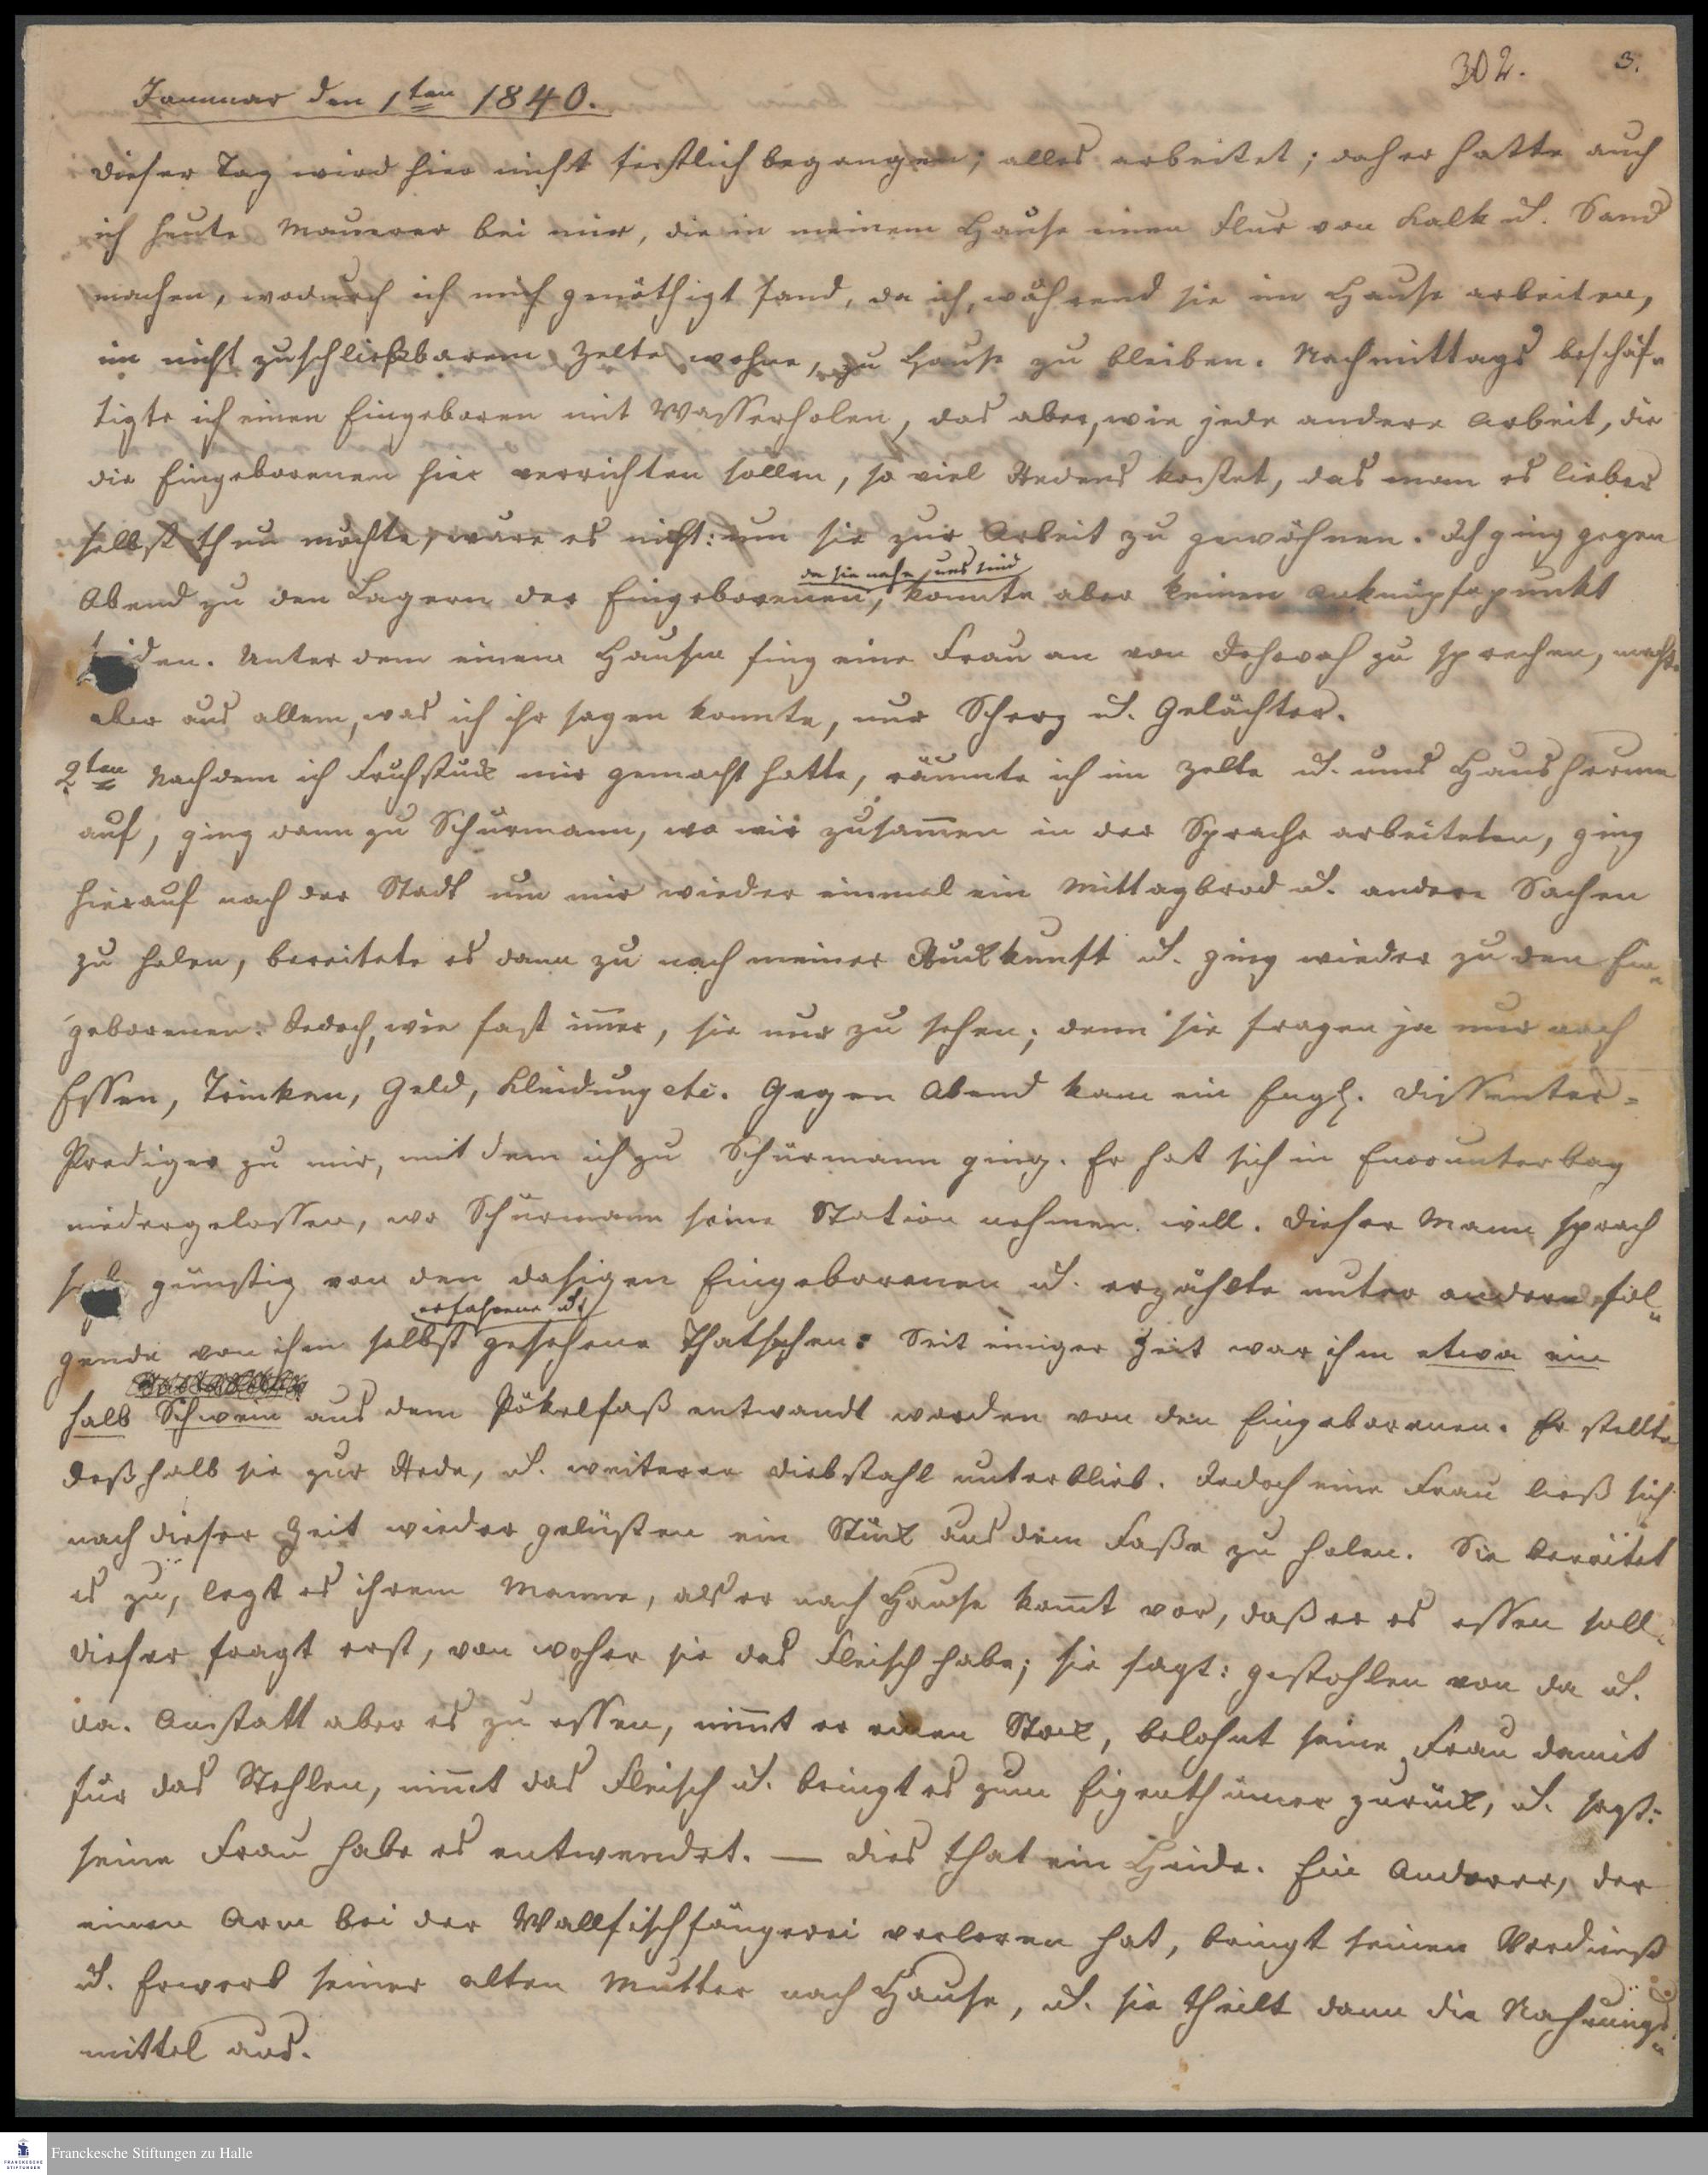 302. 3.
Januuar den 1ten 1840.
Dieser Tag wird hier nicht festlich begangen; alles arbeitet; daher hatte auch
ich heute Maurer bei mir, die in meinem Hause einen Flur von Kalk u. Sand
machen, wodurch ich mich genöthigt fand, da ich, während sie im Hause arbeiten,
im nicht zuschließbarem Zelte wohne, zu Hause zu bleiben. Nachmittags beschäf-
tigte ich einen Eingeboren mit Wasserholen, das aber, wie jede andere Arbeit, die
die Eingeborenen hier verrichten sollen, so viel Redens kostet, das man es lieber
selbst thun möchte, wäre es nicht: um sie zur Arbeit zu gewöhnen. Ich ging gegen
da sie nahe uns sind
Abend zu den Lagern der Eingeborenen, konnte aber keinen Anknüpfepunkt
finden. Unter dem einem Haufen fing eine Frau an von Jehovah zu sprechen, machte
aber aus allem, was ich ihr sagen konnte, nur Scherz u. Gelächter.
2ten Nachdem ich Fruhstuck mir gemacht hatte, räumte ich im Zelte u. ums Haus herum
auf, ging dann zu Schürmann, wo wir zusam̄en in der Sprache arbeiteten, ging
hierauf nach der Stadt um mir wieder einmal ein Mittagbrod u. andere Sachen
zu holen, bereitete es dann zu nach meiner Ruckkunft u. ging wieder zu den Ein-
geborenen. Jedoch, wie fast im̄er, sie nur zu sehen; denn sie fragen ja nur nach
Essen, Trinken, Geld, Kleidung etc. Gegen Abend kam ein Engl. Dissenter-
Prediger zu mir, mit dem ich zu Schürmann ging. Er hat sich in Encounterbay
niedergelassen, wo Schürmann seine Station nehmen will. Dieser Mann sprach
sehr günstig von den dasigen Eingeborenen u. erzählte unter andern fol-
erfahrene u.
gende von ihm selbst gesehene Thatsachen: Seit einiger Zeit war ihm etwa ein
halb Schwein aus dem Pökelfaß entwandt worden von den Eingeborenen. Er stellte
deßhalb sie zur Rede, u. weiterer Diebstahl unterblieb. Jedoch eine Frau ließ sich
nach dieser Zeit wieder gelüsten ein Stück aus dem Faße zu holen. Sie bereitet
es zu, legt es ihrem Manne, als er nach Hause kom̄t vor, daß er es essen soll.
Dieser fragt erst, von woher sie das Fleisch habe; sie sagt: gestohlen von da u.
da. Anstatt aber es zu essen, nim̄t er einen Stock, belohnt seine Frau damit
für das Stehlen, nim̄t das Fleisch u. bringt es zum Eigenthümer zurück, u. sagt:
seine Frau habe es entwendet. — Dies that ein Heide. Ein Anderer, der
einen Arm bei der Wallfischfängerei verloren hat, bringt seinen Verdienst
u. Erwerb seiner alten Mutter nach Hause, u. sie theilt dann die Nahrungs-
mittel aus.
Franckesche Stiftungen zu Halle